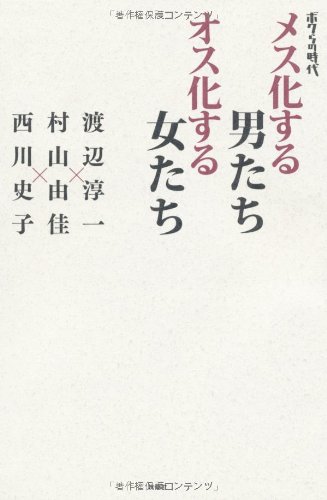 「著作権保護コンテンツ」
ボクらの時代
メス化する
男たち
オス化する
女たち
渡辺淳一
×
村山由佳
×
西川史子
扶桑社
「著作権保護コンテンツ」